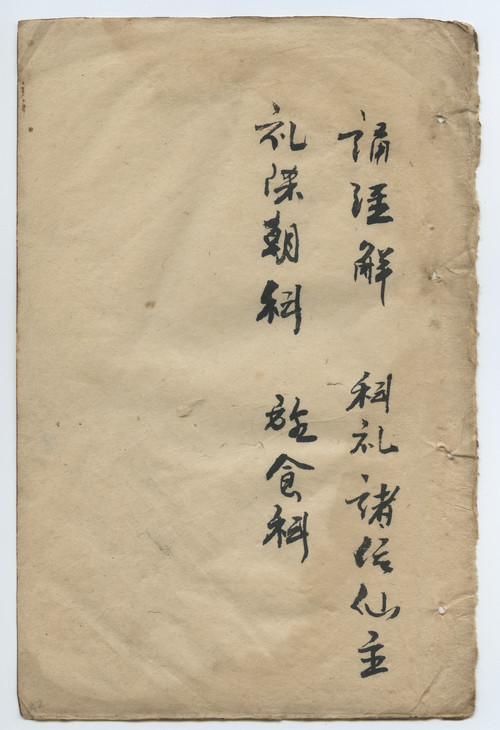 誦經解 科礼諸位仙主
礼陳朝科 施食科